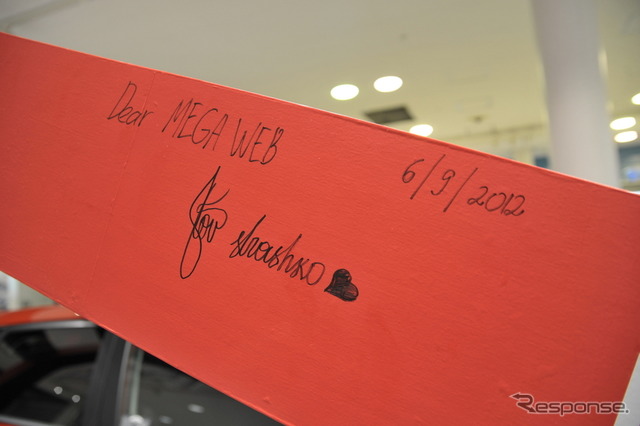 Dear MEGA WEB
6/9/2012
strashko
Response.